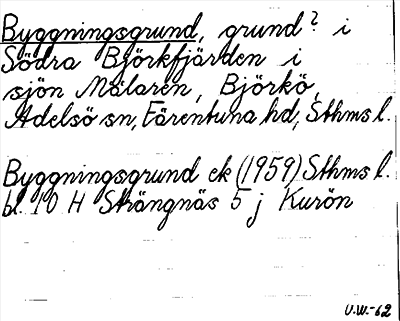 Byggningsgrund, grund? i
Södra Björkfjärden i
sjön Mälaren, Björkö,
Adelsö sn, Färentuna hd, Sthms l.
Byggningsgrund ek (1959) Sthms l.
bl. 10 H Strängnäs 5 j Kurön
U.W.-62